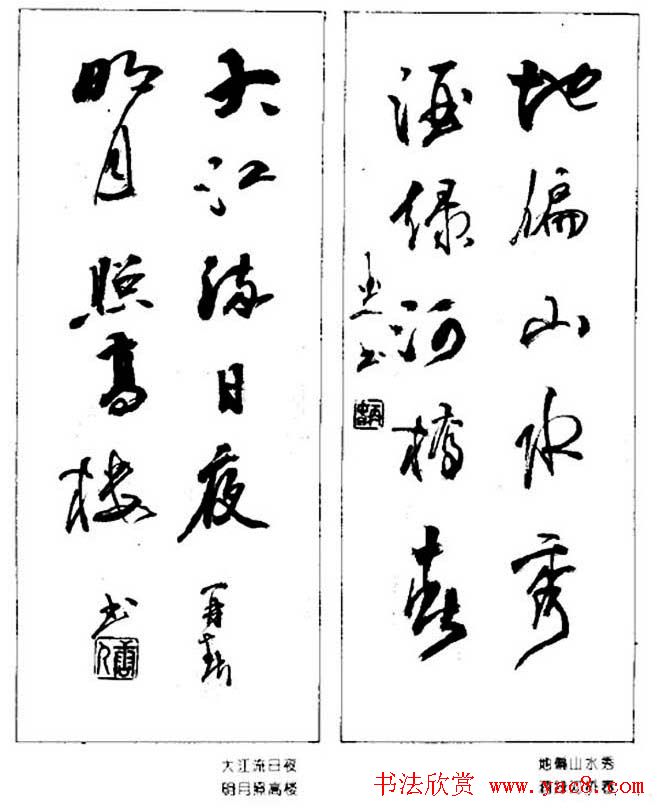 地偏山水秀
酒绿河桥春
大江流日夜
明月照高楼
书
地偏山水秀
大江流日夜
明月照高楼
书法欣赏 www.yac8.com